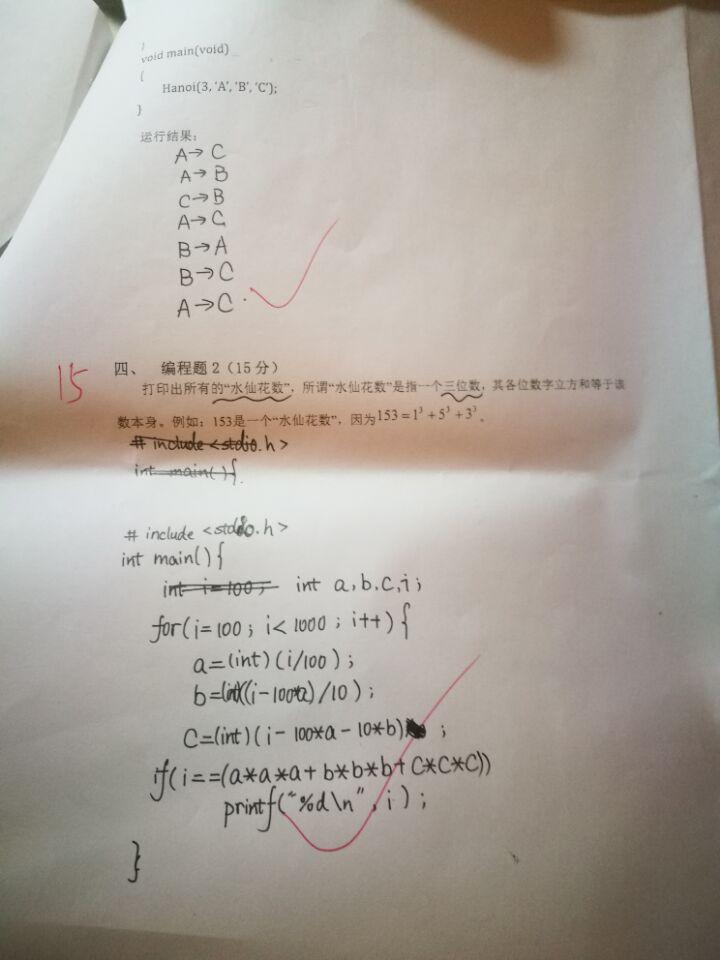 }
void main(void)
{
Hanoi(3, 'A', 'B', 'C');
}
运行结果：
A→C
A→B
C→B
A→C
B→A
B→C
A→C.
15
四、 编程题2（15分）
打印出所有的“水仙花数”，所谓“水仙花数”是指一个三位数，其各位数字立方和等于该
数本身。例如：153是一个“水仙花数”，因为153=1³+5³+3³。
# include <stdio.h>
int main(){
# include <stdio.h>
int main(){
int i=100; int a,b.c,i;
for(i=100; i<1000; i++){
a=(int)(i/100);
b=(int)((i-100*a)/10);
c=(int)(i-100*a-10*b);
if(i==(a*a*a+b*b*b+c*c*c))
printf("%d\n",i);
}